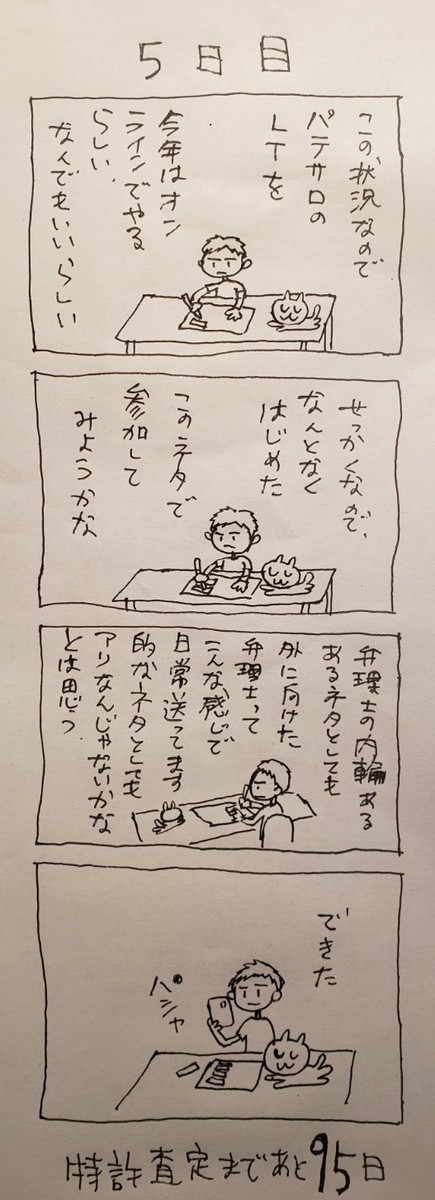 5日目
この状況なので
パテサロの
LTを
今年はオン
ラインでやる
らしい.
なんでもいいらしい
せっかくなので、
なんとなく
はじめた
このネタで
参加して
みようかな
弁理士の内輪ある
あるネタとしても
外に向けた
弁理士って
こんな感じで
日常送ってます
的なネタとしても
アリなんじゃないかな
とは思う.
できた
パシャ
特許査定まであと95日